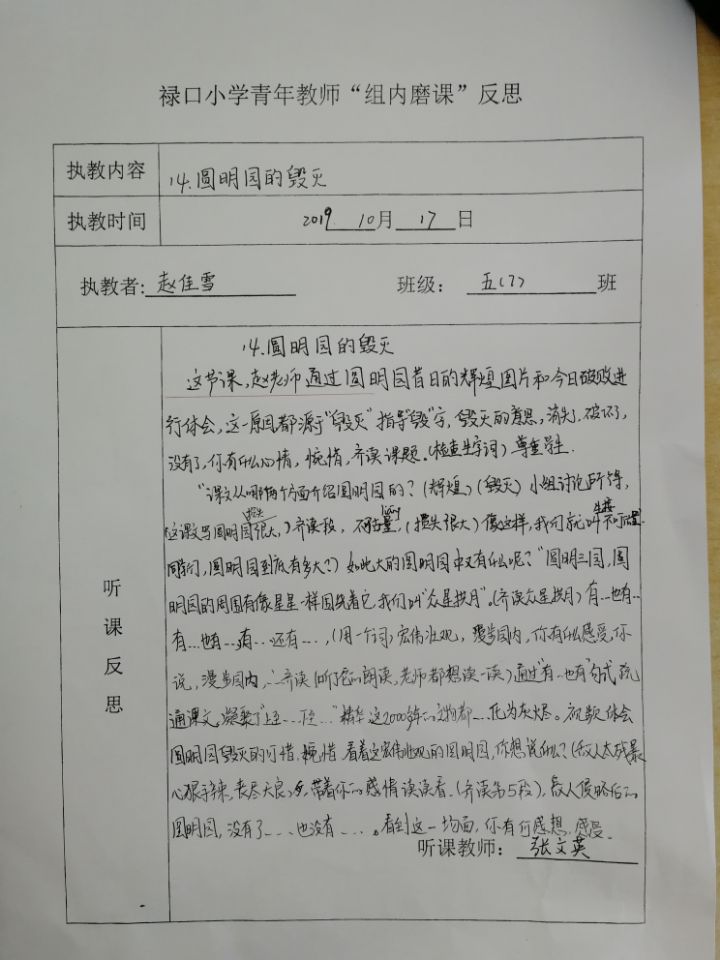 禄口小学青年教师“组内磨课”反思
执教内容 14.圆明园的毁灭
执教时间 2019 10月 17 日
执教者: 赵佳雪 班级: 五(7) 班
听课反思
14.圆明园的毁灭
这节课,赵老师通过圆明园昔日的辉煌图片和今日破败进
行体会,这一原因都源于“毁灭”指导“毁”字,毁灭的意思,消灭,破坏了,
没有了,你有什么心情,惋惜,齐读课题。(检查生字词)尊重学生.
“课文从哪两个方面介绍圆明园的?(辉煌)(毁灭)小组讨论所得,
这课文写圆明园很大,)齐读段,不可估量,(损失很大)像这样,我们就叫不可估量.
同学们,圆明园到底有多大?)如此大的圆明园中又有什么呢?“圆明三园,圆
明园的周围有像星星一样围绕着它,我们叫“众星拱月”.(齐读众星拱月)有…也有…
有…也有…有…还有…,(用一个词)宏伟壮观,漫步园内,你有什么感受,你
说,漫步园内,…齐读(听了你的朗读,老师都想读一读)通过“有…也有”句式疏
通课文,凝聚了“上至…下至…”精华这2000多年的文物都…化为灰烬。视频体会
圆明园毁灭的可惜.惋惜.看着这宏伟壮观的圆明园,你想说什么?(敌人太残暴
心狠手辣,丧尽天良,带着你的感情读读看.(齐读第5段),敌人侵略后的
圆明园,没有了…也没有…。看到这一场面,你有何感想.感受.
听课教师: 张文英